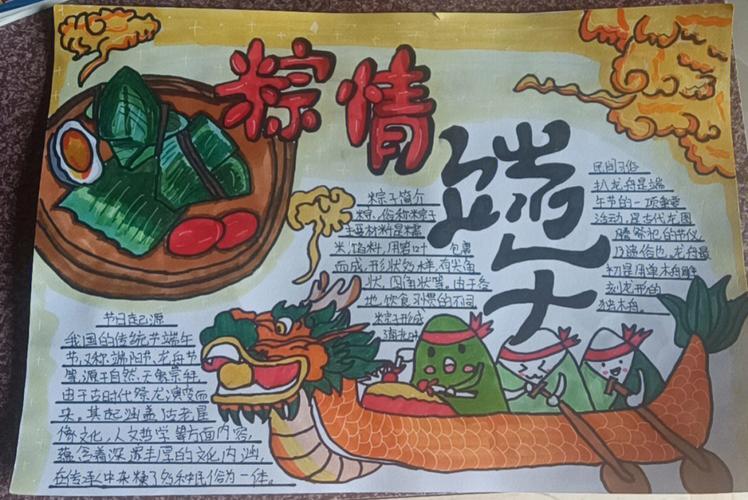 粽情
端午
粽子简介
粽,俗称粽子
主要材料是糯
米、馅料,用箬叶 包裹
而成,形状多样,有尖角
状、四角状等。由于各
地饮食习惯的不同
粽子形成
南北
民间习俗
扒龙舟是端
午节的一项重要
活动,是古代龙图
腾祭祀的节仪
乃遗俗也。龙舟最
初是用单木舟雕
刻龙形的
独木舟。
节日起源
我国的传统节端午
节,又称端阳节,龙舟节
等,源于自然天象崇拜
由于古时代祭龙演变而
来。其起涵盖古老星
像文化,人文哲学等方面内容,
蕴含着深邃丰厚的文化内涵,
在传承中杂糅了多种民俗为一体。